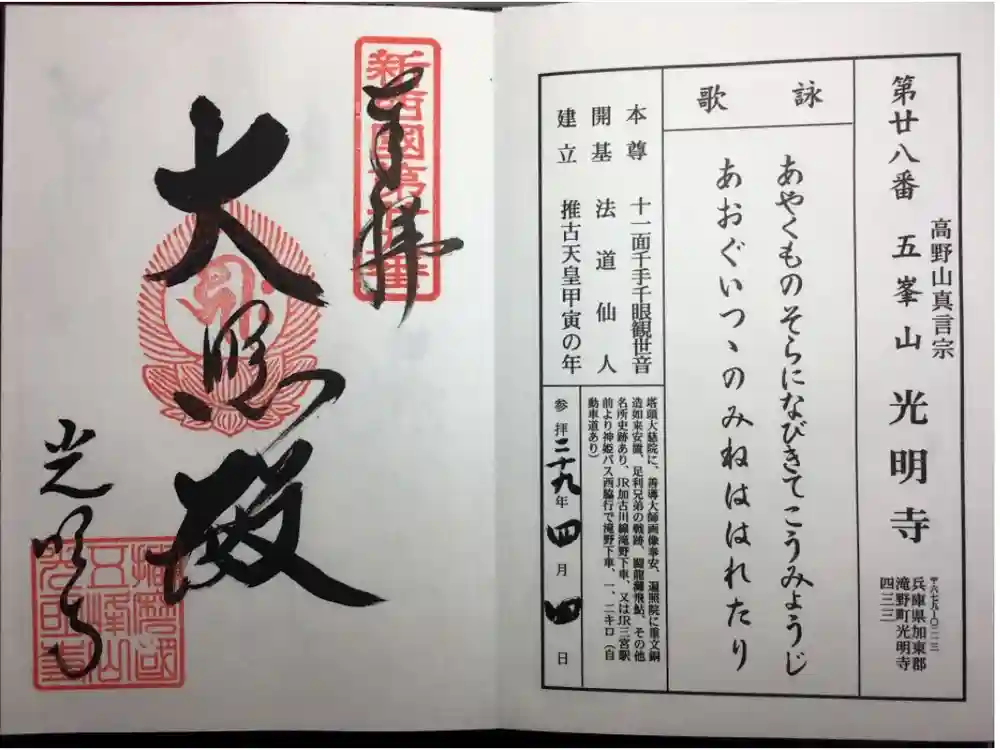 第廿八番 五峯山 光明寺
高野山真言宗
〒六七九-〇二一三
兵庫県加東郡
滝野町光明寺
四三三
詠歌
あやくものそらになびきてこうみょうじ
あおぐいつヽのみねははれたり
本尊 十一面千手千眼観世音
開基 法道仙人
建立 推古天皇甲寅の年
塔頭大慈院に、善導大師画像奉安、遍照院に重文銅
造如来安置、足利兄弟の戦跡、闘龍灘飛鮎、その他
名所史跡あり、JR加古川線滝野下車、又はJR三宮駅
前より神姫バス西脇行で滝野下車、一、二キロ（自
動車道あり）
参拝二十九年四月四日
新西國第廿八番
奉拝
大照殿
光明寺
播磨國
五峰山
光明寺